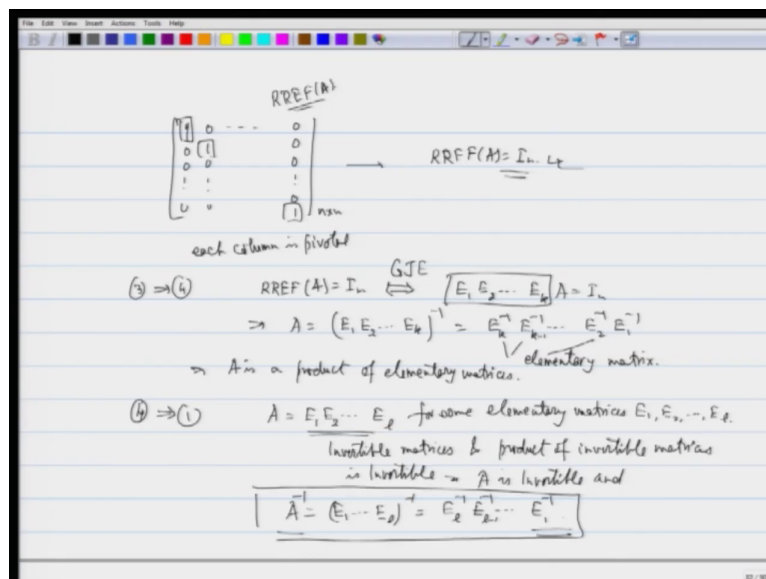 File Edit View Insert Actions Tools Help
B I
RREF(A)
1 0 - - - 0
0 1 0
0 0 0
⋮ ⋮ ⋮
0 0 0
1 n×n
→ RREF(A) = Iₙ
each column is pivotal
③ ⇒ ④ RREF(A) = Iₙ ⟺ GJE E₁ E₂ ... Eₖ A = Iₙ
⇒ A = (E₁ E₂ ... Eₖ)⁻¹ = Eₖ⁻¹ Eₖ₋₁⁻¹ ... E₂⁻¹ E₁⁻¹
elementary matrix.
⇒ A is a product of elementary matrices.
④ ⇒ ① A = E₁ E₂ ... Eₗ for some elementary matrices E₁, E₂, ..., Eₗ.
Invertible matrices & product of invertible matrices
is Invertible ⇒ A is Invertible and
A⁻¹ = (E₁ ... Eₗ)⁻¹ = Eₗ⁻¹ Eₗ₋₁⁻¹ ... E₁⁻¹